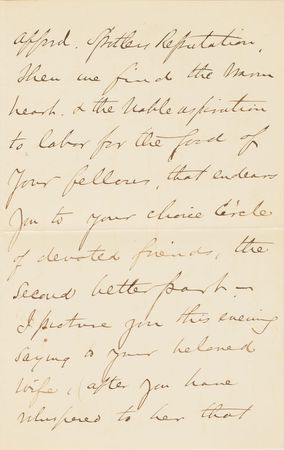 afford. Spotless Reputation,
Then we find the warm
heart. & the Noble aspiration
to labor for the good of
Your fellows, that endears
you to your choice Circle
of devoted friends, the
Second better part –
I picture you this evening
saying to your beloved
Wife, (after you have
whispered to her that